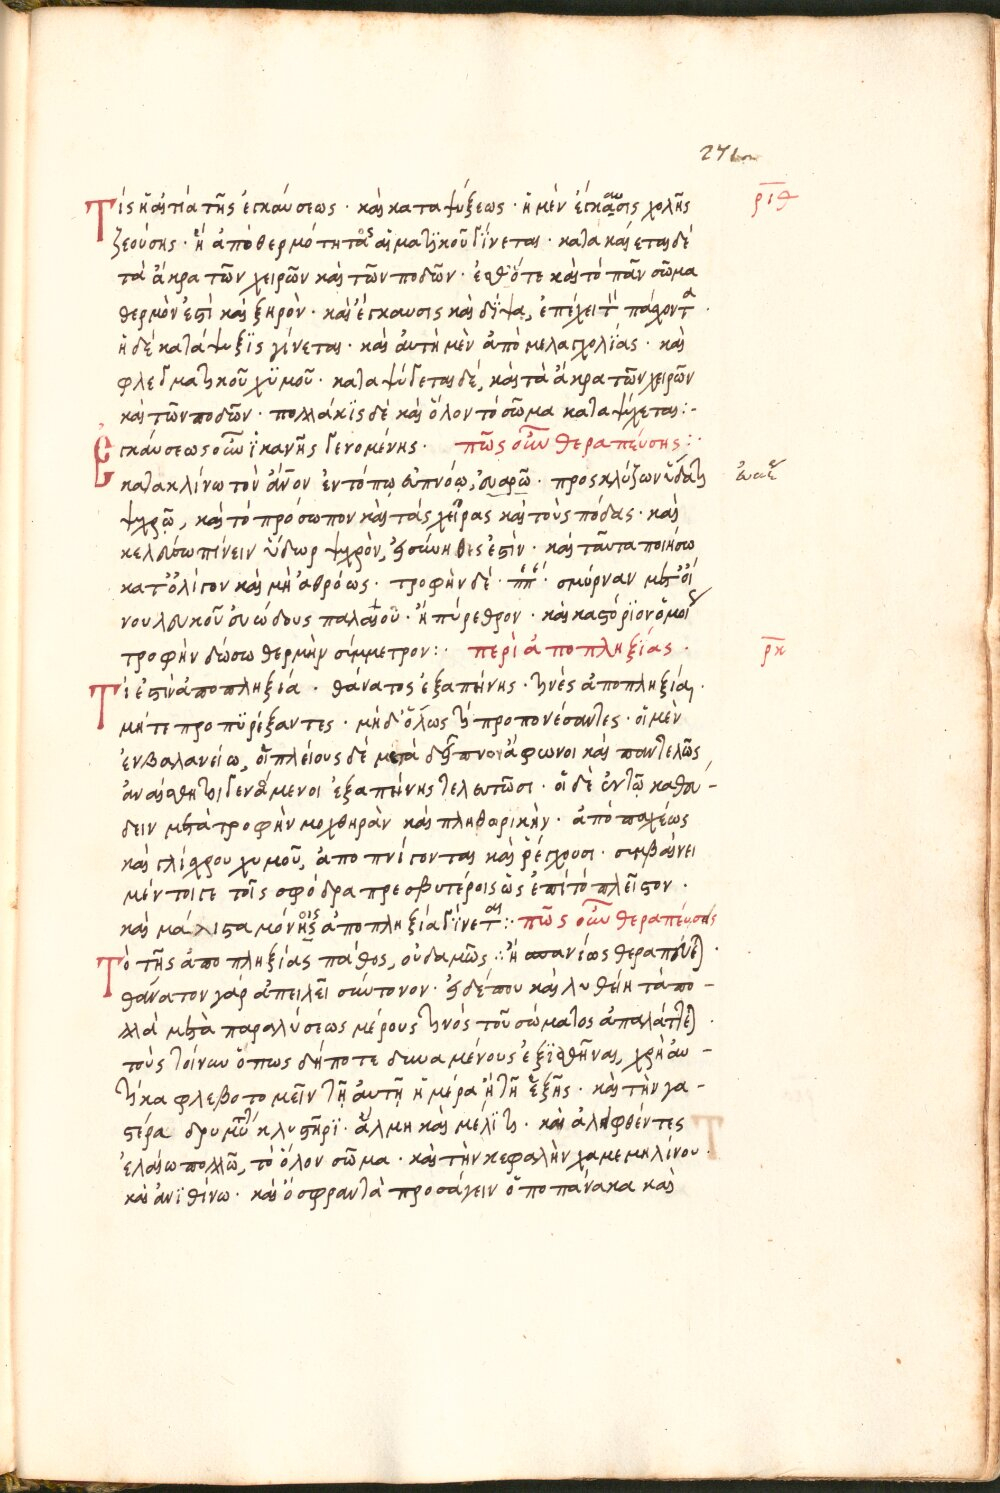 271
Τίς ἡ αἰτία τῆς ἐγκαύσεως · καὶ καταψύξεως · ἡ μὲν ἔγκαυσις χολῆς ριθ
ζεούσης · ἢ ἀπὸ θερμότητος αἱματικοῦ γίνεται · κατακαίεται δὲ
τὰ ἄκρα τῶν χειρῶν καὶ τῶν ποδῶν · ἔσθ ὅτε καὶ τὸ πᾶν σῶμα
θερμὸν ἐστὶ καὶ ξηρὸν · καὶ ἔγκαυσις καὶ δίψα, ἐπέχει τ πάσχοντα ·
ἡ δὲ κατάψυξις γίνεται · καὶ αὐτὴ μὲν ἀπὸ μελαγχολίας · καὶ
φλεγματικοῦ χϋμοῦ · καταψύγεται δέ, καὶ τὰ ἄκρα τῶν χειρῶν
καὶ τῶν ποδῶν · πολλάκϊς δὲ καὶ ὅλον τὸ σῶμα καταψύχεται :-
ἐγκαύσεως οὖν ἱκανῆς γενομένης · πῶς οὖν θεραπεύσης :·
κατακλίνω τὸν ἄνον ἐν τόπῳ εὐπνόῳ, · προσκλύζων ὕδατι
ψυχρῷ, καὶ τὸ πρόσωπον καὶ τὰς χεῖρας καὶ τοὺς πόδας · καὶ
κελεύσω πίνειν ὕδωρ ψυχρὸν, συνηθες ἐστὶν · καὶ ταῦτα ποιήσω
κατ ὀλίγον καὶ μὴ ἀθρόως · τροφὴν δὲ · σμύρναν μετ οἴ
νου λευκοῦ εὐώδους παλαιοῦ · ἢ πύρεθρον · καὶ καστόριον ὁμοί
τροφὴν δώσω θερμὴν σύμμετρον :· περὶ ἀποπληξίας · ρκ
Τί ἐστὶν ἀποπληξία · θάνατος ἐξαπίνης · τινὲς ἀποπληξία ·
μήτε προπϋρέξαντες · μηδ ὅλως τί προπονέσαντες · οἱ μὲν
ἐν βαλανείω, οἱ πλείους δὲ μετὰ δεῖπνον ἄφωνοι καὶ παντελῶς
ἀναίσθητοι γενάμενοι ἐξαπίνης τελευτῶσι · οἱ δὲ ἐν τῷ καθεύ-
δειν μετὰ τροφὴν μοχθηρὰν καὶ πληθωρικὴν · ἀπὸ παχέως
καὶ γλίσχρου χυμοῦ, ἀποπνίγονται καὶ ῥέγχουσι · συμβαίνει
μέν τοιγε τοῖς σφόδρα πρεσβυτέροις ὡς ἐπὶ τὸ πλεῖστον ·
καὶ μάλιστα μόνοις ἀποπληξία γίνεται :· πῶς οὖν θεραπεύσεις
Τὸ τῆς ἀποπληξίας πάθος, οὐδαμῶς · ἢ σπανίως θεραπεύε ·
θάνατον γάρ ἀπειλεῖ σύντονον · εἰ δέ που καὶ λυθείη τὰ πο-
λλὰ μετὰ παραλύσεως μέρους τινὸς τοῦ σώματος ἀπαλάττε ·
τοὺς τοίνυν ὅπως δήποτε δυναμένους ἐξϊαθῆναι, χρὴ αὐ-
τίκα φλεβοτομεῖν τῇ αὐτῇ ἡμέρα ἢ τῇ ἑξῆς · καὶ τὴν γα-
στέρα δρυμεῖ κλυστῆρϊ · ἅλμη καὶ μέλϊτι · καὶ ἀληφθέντες
ἐλαίω πολλῶ, τὸ ὅλον σῶμα · καὶ τὴν κεφαλὴν χαμεμηλίνου ·
καὶ ἀνϊθίνω · καὶ ὀσφραντὰ προσάγειν ὀποπάνακα καὶ